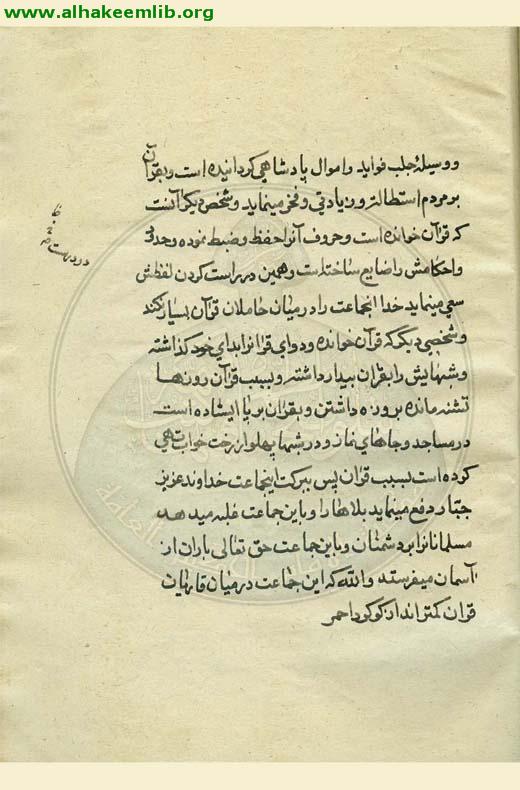 www.alhakeemlib.org
و وسیلهٔ جلب فواید و اموال پادشاهی کردانیده است و بقرآن
بر مردم استطاله و زیادتی و فخر مینماید و شخص دیکر آنست
که قرآن خوانده است و حروف آنرا حفظ و ضبط نموده و حدود
و احکامش را ضایع ساخته است و همین در راست کردن لفظش
سعی مینماید خدا اینجماعت را در میان حاملان قرآن بسیار نکند
و شخصی دیکر که قرآن خوانده و دوای قرانرا بدای خود کذاشته
و شبهایش را بقران بیدار داشته و بسبب قرآن روزها
تشنه مانده بروزه داشتن و بقران برپا ایستاده است
در مساجد و جاهای نماز و در شبها پهلو از رخت خواب تهی
کرده است بسبب قران پس ببرکت اینجماعت خداوند عزیز
جبار دفع مینماید بلاها را و باین جماعت غلبه میدهد
مسلمانانرا بر دشمنان و باین جماعت حق تعالی باران از
آسمان میفرستد والله که این جماعت در میان قاریان
قران کمتراند از کوکرد احمر